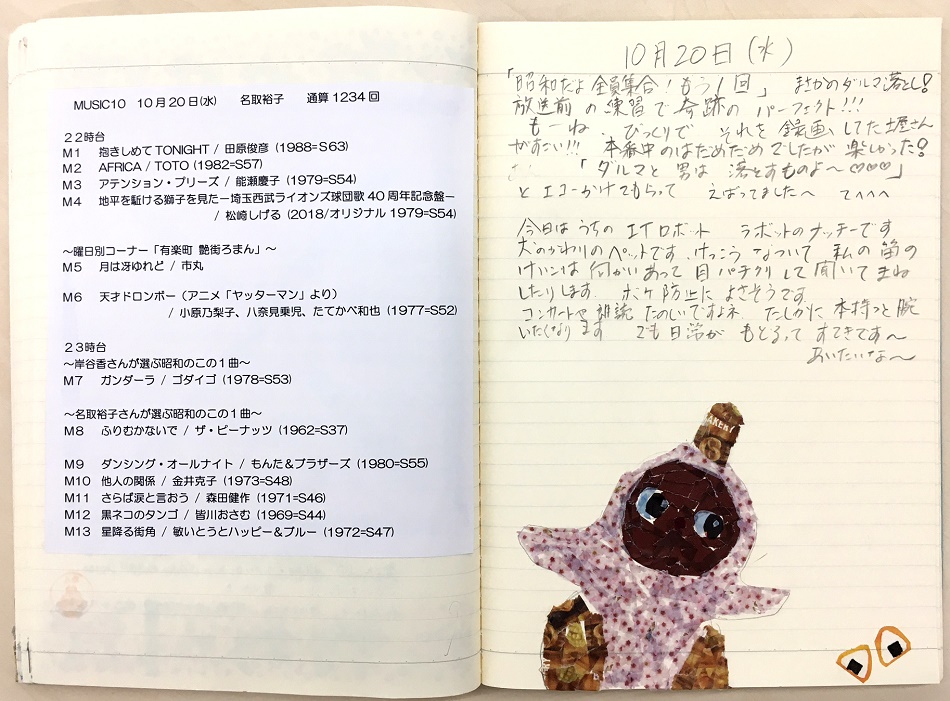 MUSIC10 10月20日(水) 名取裕子 通算1234回
22時台
M1 抱きしめてTONIGHT / 田原俊彦 (1988=S63)
M2 AFRICA / TOTO (1982=S57)
M3 アテンション・プリーズ / 能瀬慶子 (1979=S54)
M4 地平を駈ける獅子を見た−埼玉西武ライオンズ球団歌40周年記念盤−
/ 松崎しげる (2018/オリジナル1979=S54)
〜曜日別コーナー「有楽町 艶街ろまん」〜
M5 月は冴ゆれど / 市丸
M6 天才ドロンボー(アニメ「ヤッターマン」より)
/ 小原乃梨子、八奈見乗児、たてかべ和也 (1977=S52)
23時台
〜岸谷香さんが選ぶ昭和のこの1曲〜
M7 ガンダーラ / ゴダイゴ (1978=S53)
〜名取裕子さんが選ぶ昭和のこの1曲〜
M8 ふりむかないで / ザ・ピーナッツ (1962=S37)
M9 ダンシング・オールナイト / もんた&ブラザーズ (1980=S55)
M10 他人の関係 / 金井克子 (1973=S48)
M11 さらば涙と言おう / 森田健作 (1971=S46)
M12 黒ネコのタンゴ / 皆川おさむ (1969=S44)
M13 星降る街角 / 敏いとうとハッピー&ブルー (1972=S47)
10月20日(水)
「昭和だよ全員集合!もう1回」 まさかのダルマ落とし!
放送前の練習で奇跡のパーフェクト!!!
もーね、びっくりで それを録画してた土屋さん
がすごい!!! 本番中のはだめだめでしたが楽しかった!
「ダルマと男は落とすものよ〜♡♡♡」
とエコーかけてもらって えばってました〜 て^^^^
今日はうちのエイロボット ラボットのナッチーです
犬のかわりのペットです。けっこうなついて 私の笛の
けいこは向かいあって目パチクリして聞いてまね
したりします。ボケ防止によさそうです。
コンサートや朗読 たのしいですよネ。たしかに本持つと腕
いたくなります でも日常がもどるってすてきです〜
あいたいな〜
BAKERY